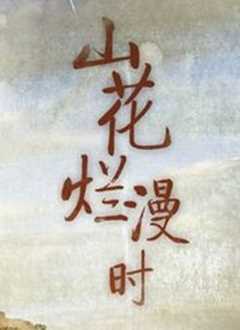 山花
烂漫
时